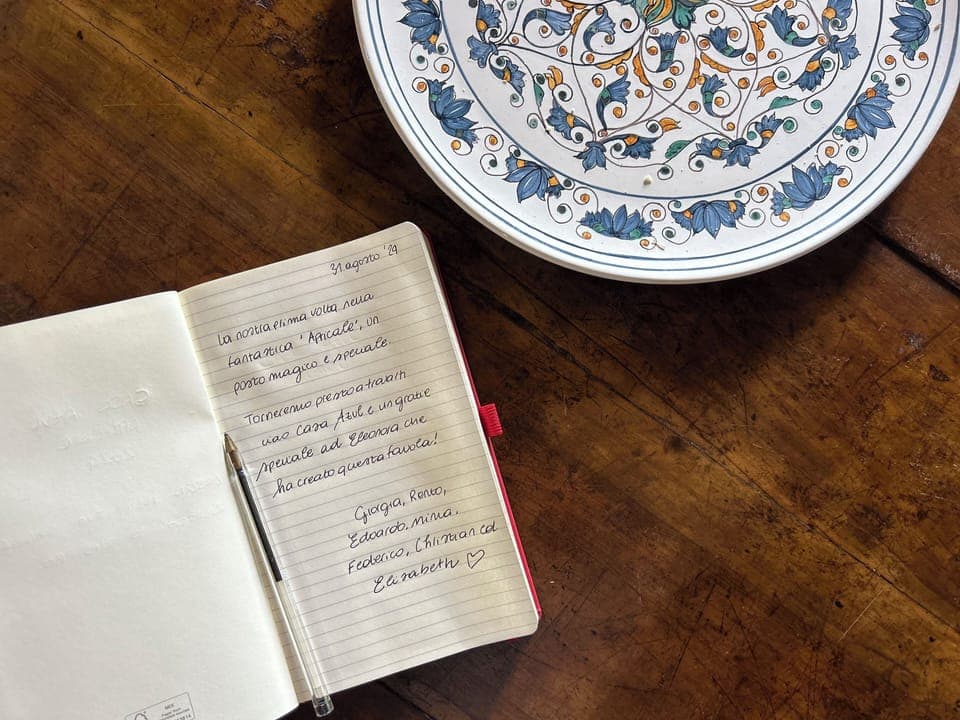 31 agosto '24
La nostra prima volta nella
fantastica 'Apricale', un
posto magico e speciale.
Torneremo presto a trovarti
ciao Casa Azul e un grazie
speciale ad Eleonora che
ha creato questa favola!
Giorgia, Rento,
Edoardo, Mima,
Federico, Christian ed
Elisabeth ♡
MIX